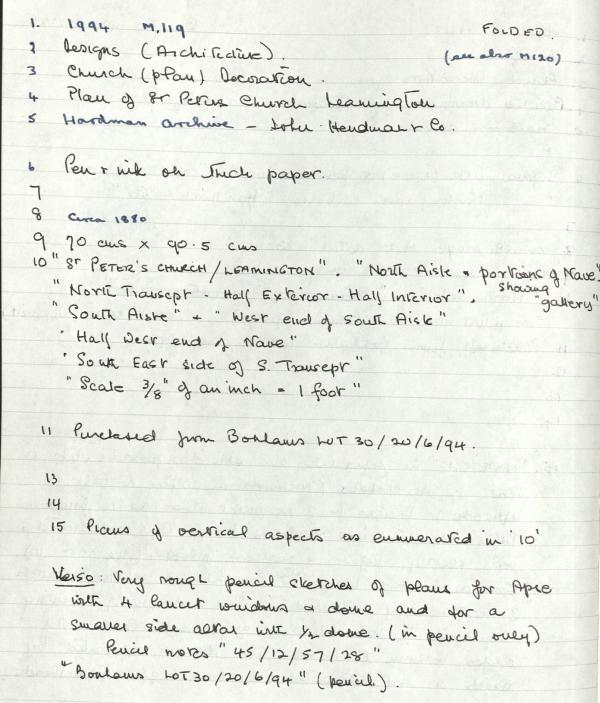 1. 1994 M.119 FOLDED.
2 Designs (Architecture). (see also M120)
3 Church (plan) Decoration.
4 Plan of St Peters Church Leamington
5 Hardman archive - John Hardman & Co.
6 Pen & ink on thick paper.
7
8 Circa 1880
9 70 cms x 90.5 cms
10 "St PETER'S CHURCH/LEAMINGTON". "North Aisle & portions of Nave".
"North Transept - Half Exterior - Half Interior". showing "gallery"
"South Aisle" & "West end of South Aisle"
"Half West end of Nave"
"South East side of S. Transept"
"Scale 3/8" of an inch = 1 foot"
11 Purchased from Bonhams LOT 30/20/6/94.
13
14
15 Plans of vertical aspects as enumerated in '10'
Verso: Very rough pencil sketches of plans for Apse
with 4 lancet windows & dome and for a
smaller side altar with ½ dome. (in pencil only)
Pencil notes "45/12/57/28"
"Bonhams LOT 30/20/6/94" (pencil).